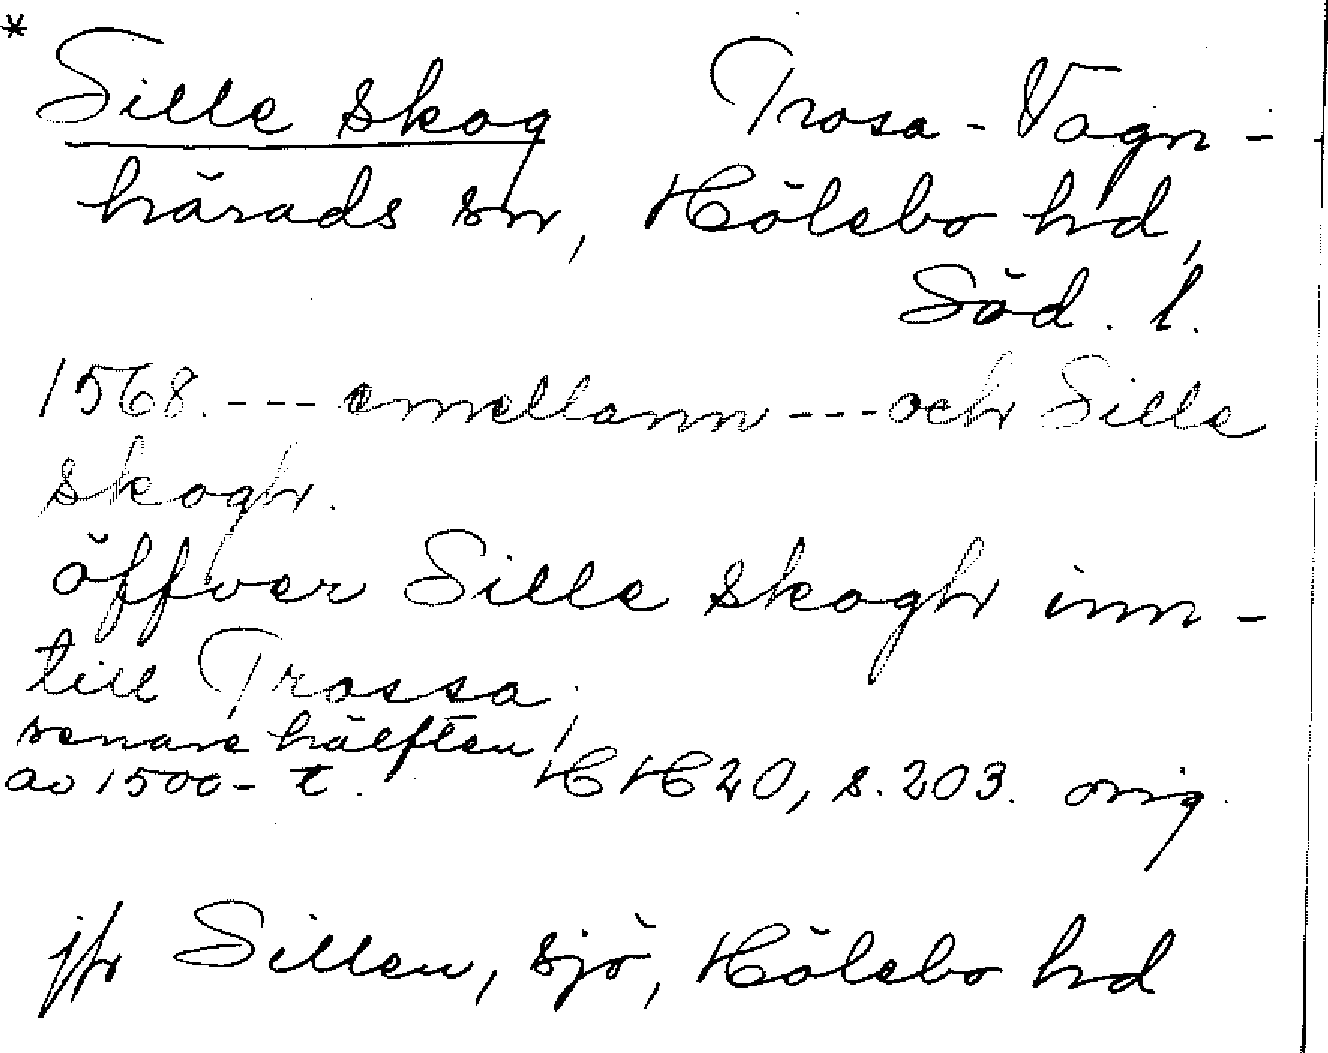 *
Sille skog Trosa-Vagn-
härads sn, Hölebo hd,
Söd. l.
1568. --- emellann --- och Sille
skogh.
öffver Sille skogh inn-
till Trossa
senare hälften
av 1500-t. HH 20, s. 203. orig.
jfr Sillen, sjö, Hölebo hd